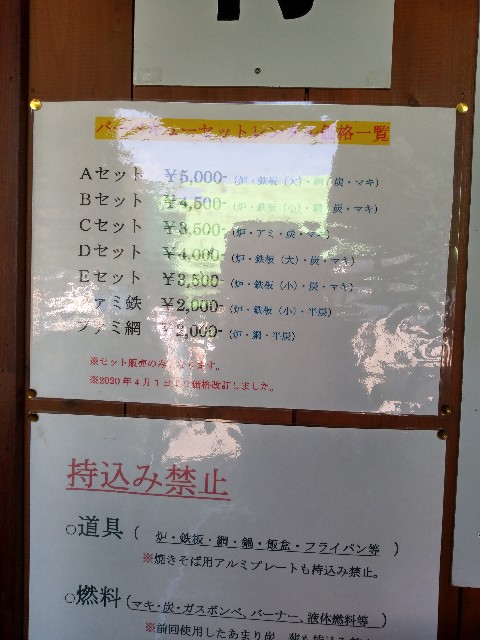 バーベキューセットレンタル価格一覧
Aセット ￥5,000- (炉・鉄板（大）・網・炭・マキ)
Bセット ￥4,500- (炉・鉄板（小）・網・炭・マキ)
Cセット ￥3,500- (炉・アミ・炭・マキ)
Dセット ￥4,000- (炉・鉄板（大）・炭・マキ)
Eセット ￥3,500- (炉・鉄板（小）・炭・マキ)
ファミ鉄 ￥2,000- (炉・鉄板（小）・半炭)
ファミ網 ￥2,000- (炉・網・半炭)
※セット販売のみとなります。
※2020年4月1日より価格改訂しました。
持込み禁止
○道具（ 炉・鉄板・網・鍋・飯盒・フライパン等 ）
※焼きそば用アルミプレートも持込み禁止。
○燃料（マキ・炭・ガスボンベ、バーナー、液体燃料等 ）
※前回使用したあまり炭